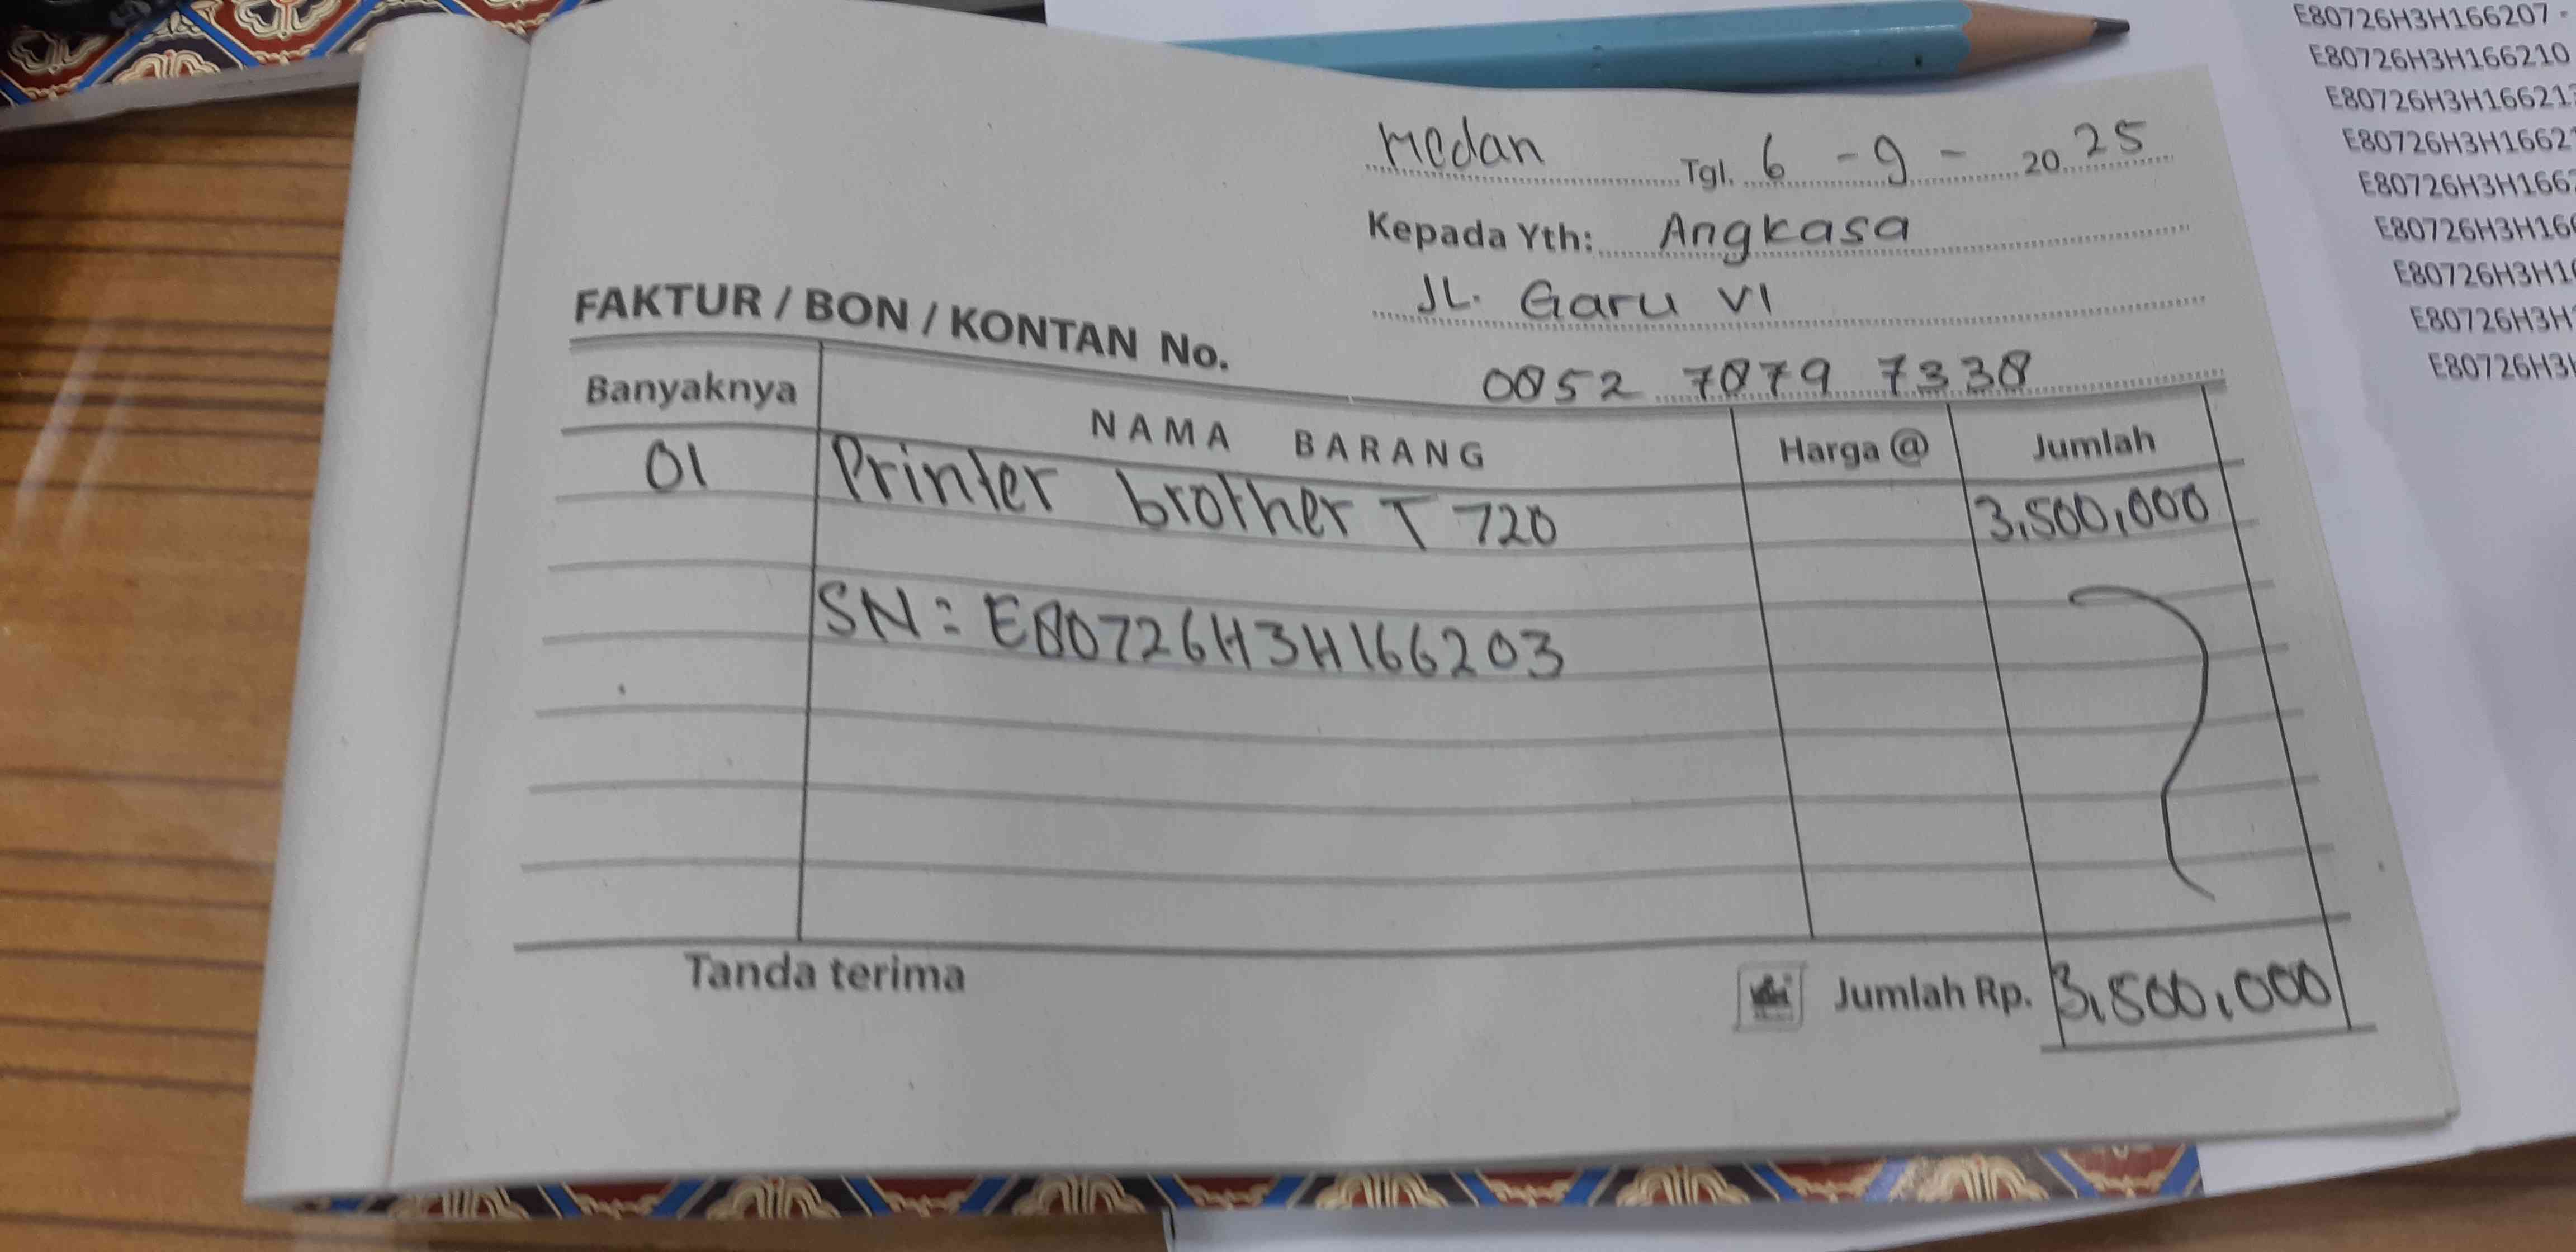 Medan Tgl. 6 - 9 - 2025
Kepada Yth: Angkasa
JL. Garu VI
0852 7879 7338
FAKTUR / BON / KONTAN No.
Banyaknya NAMA BARANG Harga @ Jumlah
01 Printer brother T 720 3,500,000
SN = E80726H3H166203
Tanda terima Jumlah Rp. 3,500,000
E80726H3H166207 -
E80726H3H166210
E80726H3H16621
E80726H3H1662
E80726H3H166
E80726H3H16
E80726H3H1
E80726H3H
E80726H3